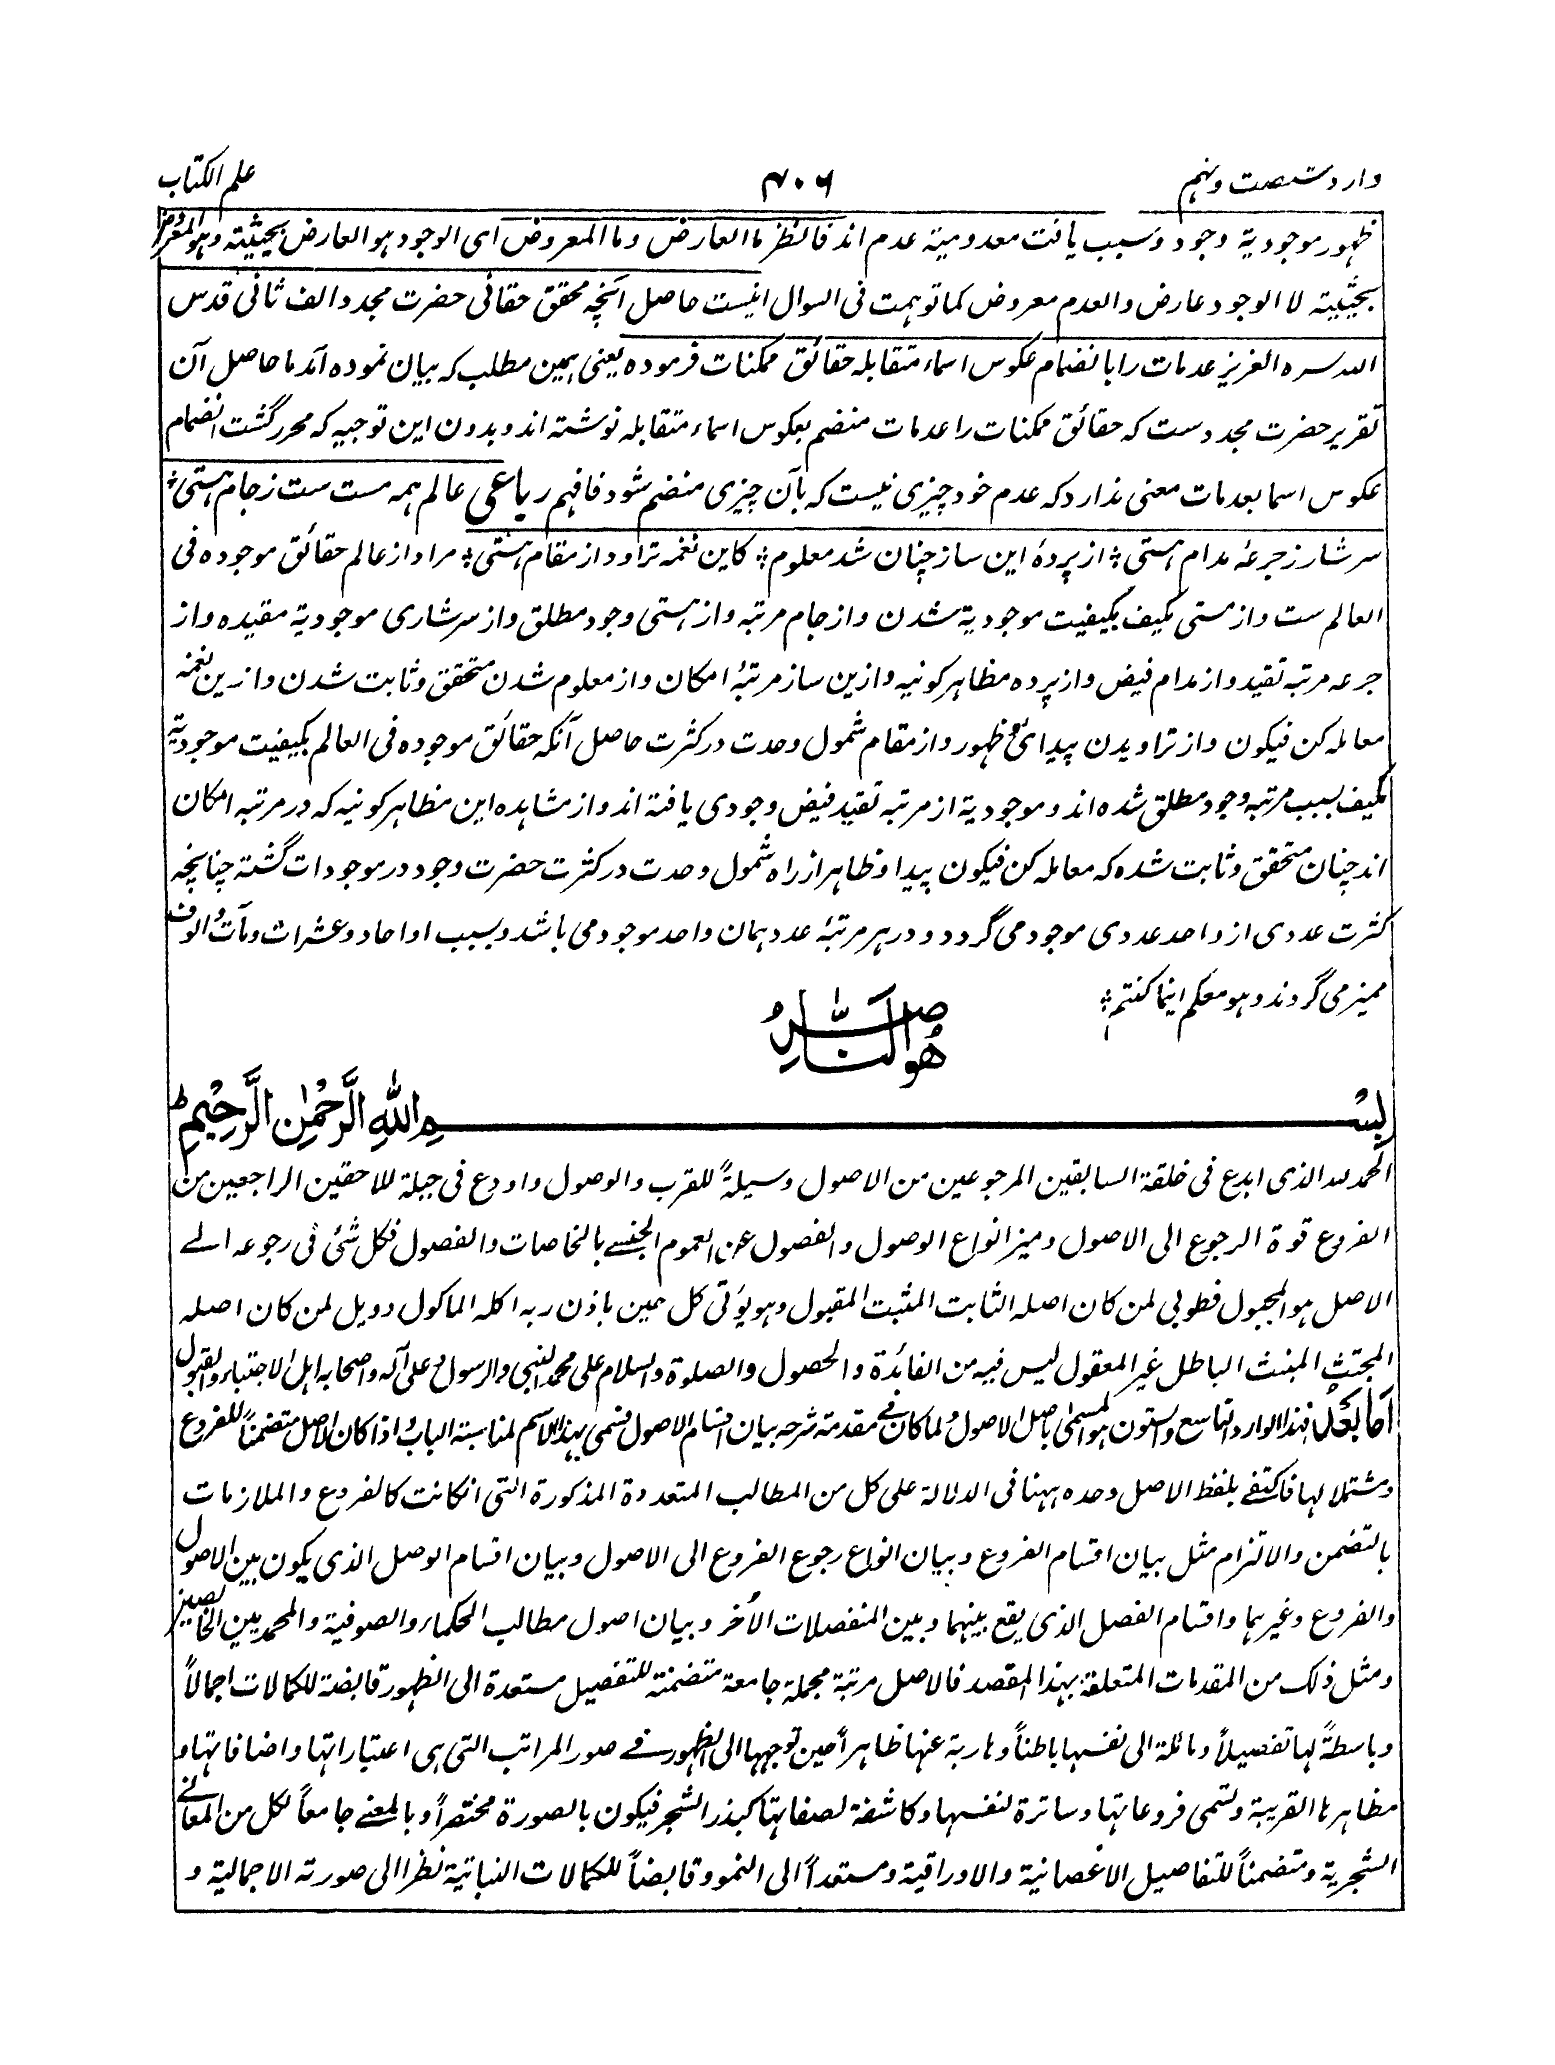 وارد شصت و نهم
۴۰۶
علم الکتاب
ظهور موجودیة وجود و سبب یافت معدومیة عدم اند فانظر ما العارض و ما المعروض ای الوجود هو العارض بحیثیته و هو المعروض
بحیثیته لا الوجود عارض والعدم معروض کما توهمت فی السوال اینست حاصل آنچه محقق حقائق حضرت مجدد الف ثانی قدس
الله سره العزیز عدمات را بانضمام عکوس اسماء متقابله حقائق ممکنات فرموده یعنی همین مطلب که بیان نموده آمد ما حاصل آن
تقریر حضرت مجدد ست که حقائق ممکنات را عدمات منضم بعکوس اسماء متقابله نوشته اند و بدون این توجیه که محرر گشت انضمام
عکوس اسما بعدمات معنی ندارد که عدم خود چیزی نیست که بآن چیزی منضم شود فافهم رباعی عالم همه مست ست ز جام هستی؞
سرشار ز جرعهٔ مدام هستی؞ از پردهٔ این ساز چنان شد معلوم؞ کاین نغمه تراود از مقام هستی؞ مراد از عالم حقائق موجوده فی
العالم ست و از مستی مکیف بکیفیت موجودیة شدن و از جام مرتبه و از هستی وجود مطلق و از سرشاری موجودیة مقیده و از
جرعه مرتبه تقید و از مدام فیض و از پرده مظاهر کونیه و ازین ساز مرتبهٔ امکان و از معلوم شدن متحقق و ثابت شدن و ازین نغمه
معامله کن فیکون و از تراویدن پیدائی و ظهور و از مقام شمول وحدت در کثرت حاصل آنکه حقائق موجوده فی العالم بکیفیت موجودیة
مکیف بسبب مرتبه وجود مطلق شده اند و موجودیة از مرتبه تقید فیض وجودی یافته اند و از مشاهده این مظاهر کونیه که در مرتبه امکان
اند چنان متحقق و ثابت شده که معامله کن فیکون پیدا و ظاهر از راه شمول وحدت در کثرت حضرت وجود در موجودات گشته چنانچه
کثرت عددی از واحد عددی موجود می گردد و در هر مرتبهٔ عدد همان واحد موجود می باشد و بسبب او احاد و عشرات و مآت و الوف
ممیز می گردند و هو معکم اینما کنتم؞
هو الناصر
بسم الله الرحمن الرحیم ط
الحمد لله الذی ابدع فی خلقة السابقین المرجوعین من الاصول وسیلةً للقرب والوصول واودع فی جبلة اللاحقین الراجعین من
الفروع قوة الرجوع الی الاصول ومیز انواع الوصول والفصول عن العموم الجنسے بالخاصات والفصول فکل شئ فی رجوعه الے
الاصل هو المجبول فطوبی لمن کان اصله الثابت المثبت المقبول وهو یؤتی کل حین باذن ربه اکله الماکول وویل لمن کان اصله
المجتث المنبث الباطل غیر المعقول لیس فیه من الفائدة والحصول والصلوة والسلام علی محمد النبی والرسول وعلی آله واصحابه اهل الاجتباء والقبول
اما بعد فهذا الوارد التاسع والستون هو المسمی باصل الاصول ولما کان فی مقدمته شرحه بیان اقسام الاصول فسمی بهذا الاسم لمناسبة الباب واذا کان الاصل متضمناً للفروع
ومشتملا لها فاکتفے بلفظ الاصل وحده ههنا فی الدلالة علی کل من المطالب المتعددة المذکورة التی انکانت کالفروع والملازمات
بالتضمن والالتزام مثل بیان اقسام الفروع وبیان انواع رجوع الفروع الی الاصول وبیان اقسام الوصل الذی یکون بین الاصول
والفروع وغیرهما واقسام الفصل الذی یقع بینهما وبین المنفصلات الاُخر وبیان اصول مطالب الحکماء والصوفیة والمحمدیین الخالصین
ومثل ذلک من المقدمات المتعلقة بهذا المقصد فالاصل مرتبة مجملة جامعة متضمنة للتفصیل مستعدة الی الظهور قابضة للکمالات اجمالاً
وباسطةً لها تفصیلاً ومائلة الی نفسها باطناً وهاربة عنها ظاهراً حین توجهها الی الظهور فے صور المراتب التی هی اعتباراتها واضافاتها و
مظاهرها القریبة وتسمی فروعاتها وساترة لنفسها وکاشفة لصفاتها کبذر الشجر فیکون بالصورة مختصراً وبالمعنے جامعاً لکل من المعانے
الشجریة ومتضمناً للتفاصیل الاغصانیة والاوراقیة ومستعداً الی النمو وقابضاً للکمالات النباتیة نظرا الی صورته الاجمالیة و